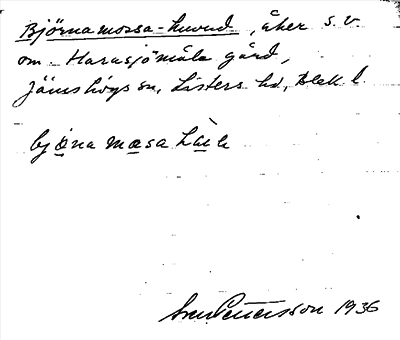 Björnamossa-huvud, åker s.v.
om Harasjömåla gård,
Jämshögs sn, Listers hd, Blek. l.
bjö̲na ma̲sa
Sven Pettersson 1936